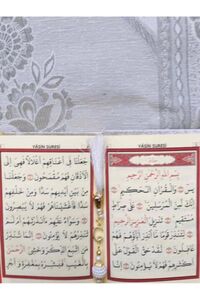 YÂSÎN SURESİ
بِسْمِ اللّٰهِ الرَّحْمٰنِ الرَّحِيمِ
يٰسٓ وَالْقُرْاٰنِ الْحَكِيمِ
اِنَّكَ لَمِنَ الْمُرْسَلِينَ عَلٰى صِرَاطٍ
مُسْتَقِيمٍ تَنْزِيلَ الْعَزِيزِ الرَّحِيمِ
لِتُنْذِرَ قَوْمًا مَٓا اُنْذِرَ اٰبَٓاؤُ۬هُمْ فَهُمْ
غَافِلُونَ لَقَدْ حَقَّ الْقَوْلُ عَلٰٓى
اَكْثَرِهِمْ فَهُمْ لَا يُؤْمِنُونَ اِنَّا
YÂSÎN SURESİ
جَعَلْنَا فِٓي اَعْنَاقِهِمْ اَغْلَالًا فَهِيَ اِلَى
الْاَذْقَانِ فَهُمْ مُقْمَحُونَ وَجَعَلْنَا
مِنْ بَيْنِ اَيْدِيهِمْ سَدًّا وَمِنْ خَلْفِهِمْ
سَدًّا فَاَغْشَيْنَاهُمْ فَهُمْ لَا يُبْصِرُونَ
وَسَوَٓاءٌ عَلَيْهِمْ ءَاَنْذَرْتَهُمْ اَمْ لَمْ
تُنْذِرْهُمْ لَا يُؤْمِنُونَ اِنَّمَا تُنْذِرُ
مَنِ اتَّبَعَ الذِّكْرَ وَخَشِيَ الرَّحْمٰنَ
بِالْغَيْبِ فَبَشِّرْهُ بِمَغْفِرَةٍ وَاَجْرٍ